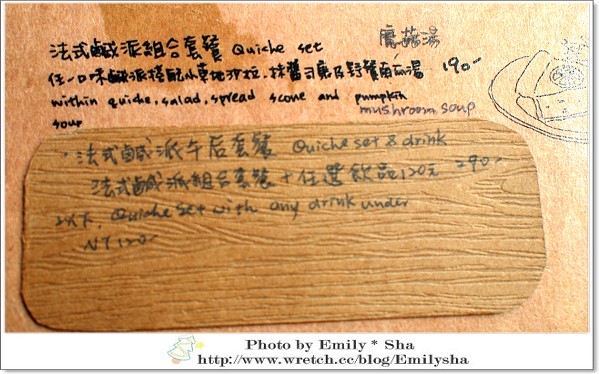 法式鹹派組合套餐 Quiche set
蘑菇湯
任一口味鹹派搭配小草地沙拉, 抹醬司康及野餐南瓜湯 190-
within quiche, salad, spread scone and pumpkin
mushroom soup
soup
· 法式鹹派午后套餐 Quiche set & drink
法式鹹派組合套餐 + 任選飲品120元 290-
以下, Quiche set with any drink under
NT120-
Photo by Emily * Sha
http://www.wretch.cc/blog/Emilysha